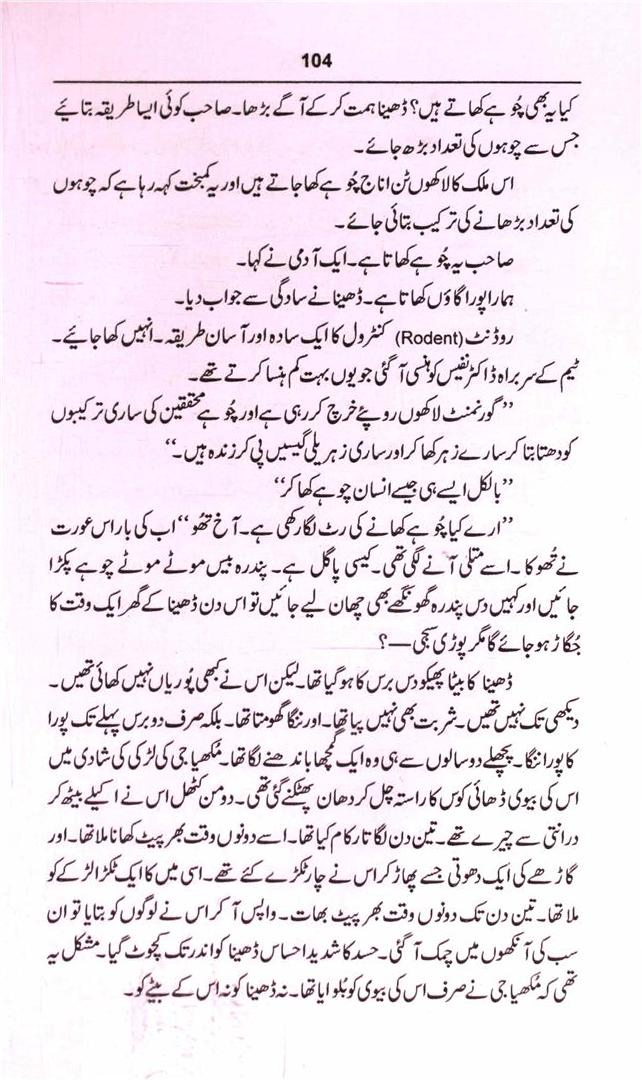 104
کیا یہ بھی چُوہے کھاتے ہیں؟ ڈھینا ہمت کرکے آگے بڑھا۔ صاحب کوئی ایسا طریقہ بتائیے
جس سے چوہوں کی تعداد بڑھ جائے۔
اس ملک کا لاکھوں ٹن اناج چُوہے کھا جاتے ہیں اور یہ کمبخت کہہ رہا ہے کہ چوہوں
کی تعداد بڑھانے کی ترکیب بتائی جائے۔
صاحب یہ چُوہے کھاتا ہے۔ ایک آدمی نے کہا۔
ہمارا پورا گاؤں کھاتا ہے۔ ڈھینا نے سادگی سے جواب دیا۔
روڈنٹ (Rodent) کنٹرول کا ایک سادہ اور آسان طریقہ۔ انہیں کھا جائیے۔
ٹیم کے سربراہ ڈاکٹر نفیس کو ہنسی آ گئی جو یوں بہت کم ہنسا کرتے تھے۔
”گورنمنٹ لاکھوں روپئے خرچ کر رہی ہے اور چُوہے محققین کی ساری ترکیبوں
کو دھتا بتا کر سارے زہر کھا کر اور ساری زہریلی گیسیں پی کر زندہ ہیں۔“
”بالکل ایسے ہی جیسے انسان چوہے کھا کر“
”ارے کیا چُوہے کھانے کی رٹ لگا رکھی ہے۔ آخ تھُو“ اب کی بار اس عورت
نے تھُوکا۔ اسے متلی آنے لگی تھی۔ کیسی پاگل ہے۔ پندرہ بیس موٹے موٹے چوہے پکڑا
جائیں اور کہیں دس پندرہ گھونگھے بھی چھان لیے جائیں تو اس دن ڈھینا کے گھر ایک وقت کا
جُگاڑ ہو جائے گا مگر پوڑی سبجی—؟
ڈھینا کا بیٹا پھیکو دس برس کا ہو گیا تھا۔ لیکن اس نے کبھی پُوریاں نہیں کھائی تھیں۔
دیکھی تک نہیں تھیں۔ شربت بھی نہیں پیا تھا۔ اور ننگا گھومتا تھا۔ بلکہ صرف دو برس پہلے تک پورا
کا پورا ننگا۔ پچھلے دو سالوں سے ہی وہ ایک گمچھا باندھنے لگا تھا۔ مُکھیا جی کی لڑکی کی شادی میں
اس کی بیوی ڈھائی کوس کا راستہ چل کر دھان پھٹکنے گئی تھی۔ دو من کٹھل اس نے اکیلے بیٹھ کر
درانتی سے چیرے تھے۔ تین دن لگاتار کام کیا تھا۔ اسے دونوں وقت بھر پیٹ کھانا ملا تھا۔ اور
گاڑھے کی ایک دھوتی جسے پھاڑ کر اس نے چار ٹکڑے کئے تھے۔ اسی میں کا ایک ٹکڑا لڑکے کو
ملا تھا۔ تین دن تک دونوں وقت بھر پیٹ بھات۔ واپس آ کر اس نے لوگوں کو بتایا تو ان
سب کی آنکھوں میں چمک آ گئی۔ حسد کا شدید احساس ڈھینا کو اندر تک کچوٹ گیا۔ مشکل یہ
تھی کہ مُکھیا جی نے صرف اس کی بیوی کو بُلوایا تھا۔ نہ ڈھینا کو نہ اس کے بیٹے کو۔